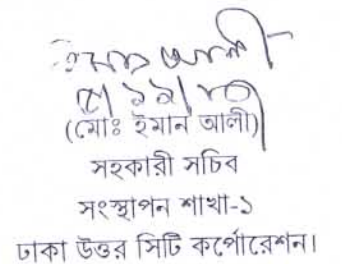 (মোঃ ইমান আলী)
সহকারী সচিব
সংস্থাপন শাখা-১
ঢাকা উত্তর সিটি কর্পোরেশন।